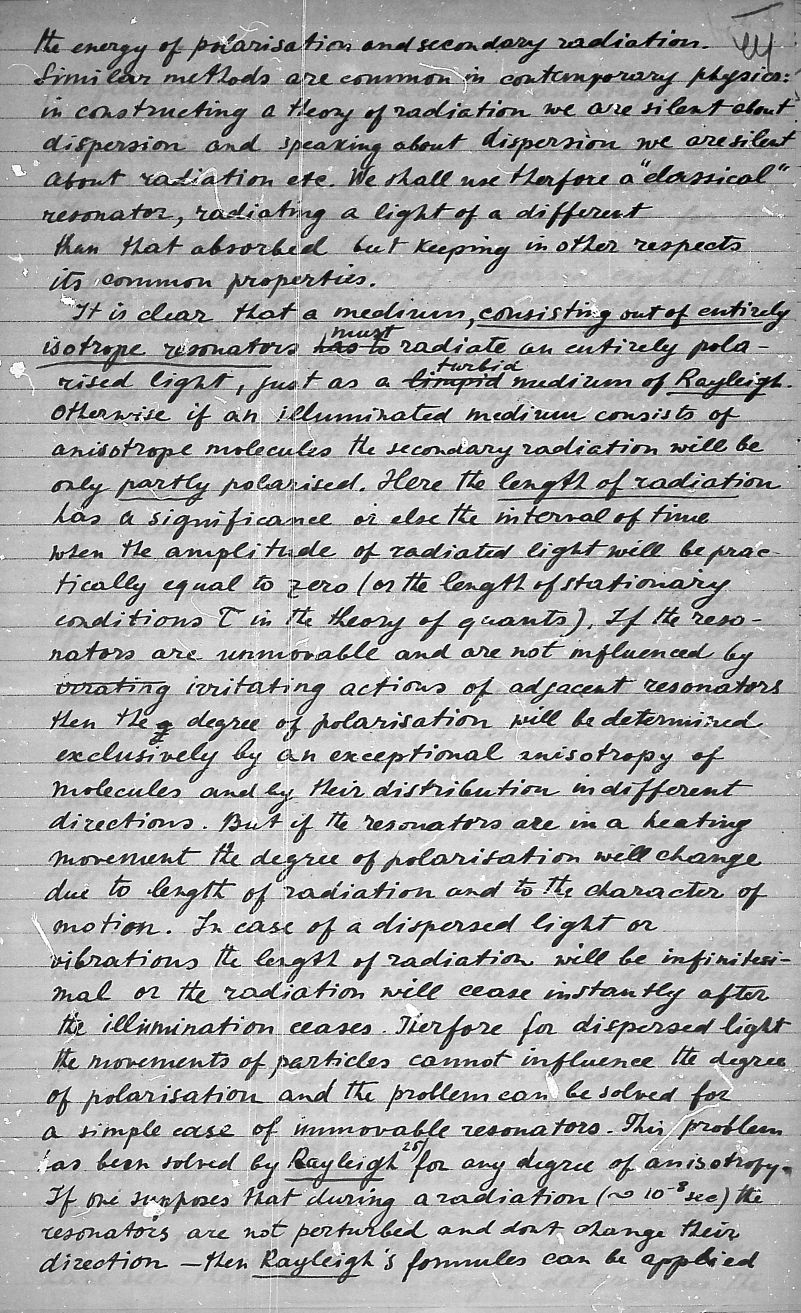 the energy of polarisation and secondary radiation.
Similar methods are common in contemporary physics:
in constructing a theory of radiation we are silent about
dispersion and speaking about dispersion we are silent
about radiation etc. We shall use therfore a "classical"
resonator, radiating a light of a different
than that absorbed but keeping in other respects
its common properties.
It is clear that a medium, consisting out of entirely
isotrope resonators has to must radiate an entirely pola-
rised light, just as a limpid turbid medium of Rayleigh.
Otherwise if an illuminated medium consists of
anisotrope molecules the secondary radiation will be
only partly polarised. Here the length of radiation
has a significance or else the interval of time
when the amplitude of radiated light will be prac-
tically equal to zero (or the length of stationary
conditions τ in the theory of quants). If the reso-
nators are unmovable and are not influenced by
irritating actions of adjacent resonators
then the degree of polarisation will be determined
exclusively by an exceptional anisotropy of
molecules and by their distribution in different
directions. But if the resonators are in a heating
movement the degree of polarisation will change
due to length of radiation and to the character of
motion. In case of a dispersed light or
vibrations the length of radiation will be infinitesi-
mal or the radiation will cease instantly after
the illumination ceases. Therfore for dispersed light
the movements of particles cannot influence the degree
of polarisation and the problem can be solved for
a simple case of immovable resonators. This problem
has been solved by Rayleigh 25) for any degree of anisotropy.
If one supposes that during a radiation (~ 10⁻⁸ sec) the
resonators are not perturbed and dont change their
direction – then Rayleigh's formules can be applied